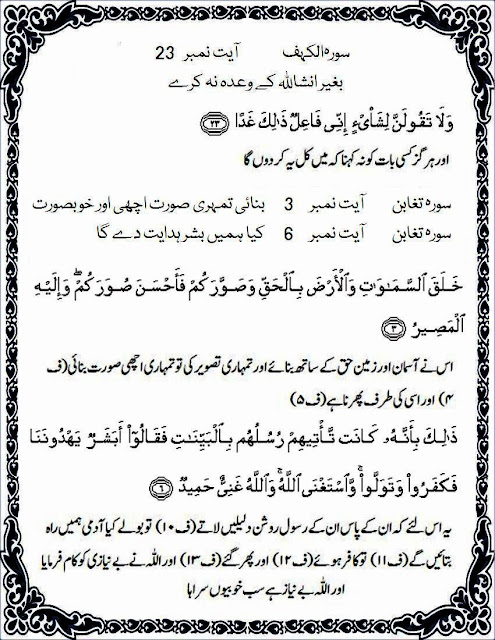 سورہ الکہف آیت نمبر 23
بغیر انشاللہ کے وعدہ نہ کرے
وَلَا تَقُولَنَّ لِشَا۟ىْءٍ إِنِّى فَاعِلٌ ذَٰلِكَ غَدًا ٢٣
اور ہر گز کسی بات کو نہ کہنا کہ میں کل یہ کر دوں گا
سورہ تغابن آیت نمبر 3 بنائی تمہری صورت اچھی اور خوبصورت
سورہ تغابن آیت نمبر 6 کیا ہمیں بشر ہدایت دے گا
خَلَقَ ٱلسَّمَـٰوَٰتِ وَٱلْأَرْضَ بِٱلْحَقِّ وَصَوَّرَكُمْ فَأَحْسَنَ صُوَرَكُمْ ۖ وَإِلَيْهِ
ٱلْمَصِيرُ ٣
اس نے آسمان اور زمین حق کے ساتھ بنائے اور تمہاری تصویر کی تو تمہاری اچھی صورت بنائی (ف
۴) اور اسی کی طرف پھرنا ہے (ف۵)
ذَٰلِكَ بِأَنَّهُۥ كَانَت تَّأْتِيهِمْ رُسُلُهُم بِٱلْبَيِّنَـٰتِ فَقَالُوٓا۟ أَبَشَرٌ يَهْدُونَنَا
فَكَفَرُوا۟ وَتَوَلَّوا۟ ۚ وَّٱسْتَغْنَى ٱللَّهُ ۚ وَٱللَّهُ غَنِىٌّ حَمِيدٌ ٦
یہ اس لئے کہ ان کے پاس ان کے رسول روشن دلیلیں لاتے (ف۱۰) تو بولے کیا آدمی ہمیں راہ
بتائیں گے (ف۱۱) تو کافر ہوئے (ف۱۲) اور پھر گئے (ف۱۳) اور اللہ نے بے نیازی کو کام فرمایا
اور اللہ بے نیاز ہے سب خوبیوں سراہا